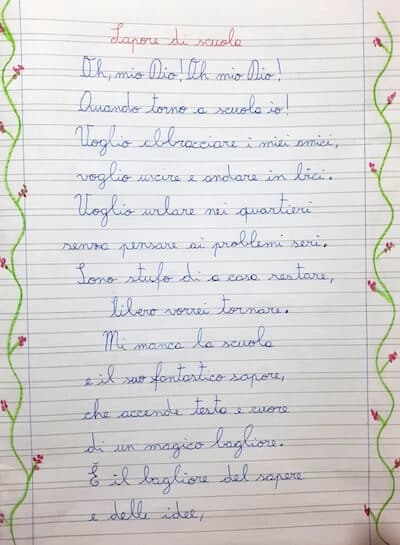 Sapore di scuola
Oh, mio Dio! Oh mio Dio!
Quando torno a scuola io!
Voglio abbracciare i miei amici,
voglio uscire e andare in bici.
Voglio urlare nei quartieri
senza pensare ai problemi seri.
Sono stufo di a casa restare,
libero vorrei tornare.
Mi manca la scuola
e il suo fantastico sapore,
che accende testa e cuore
di un magico bagliore.
É il bagliore del sapere
e delle idee,